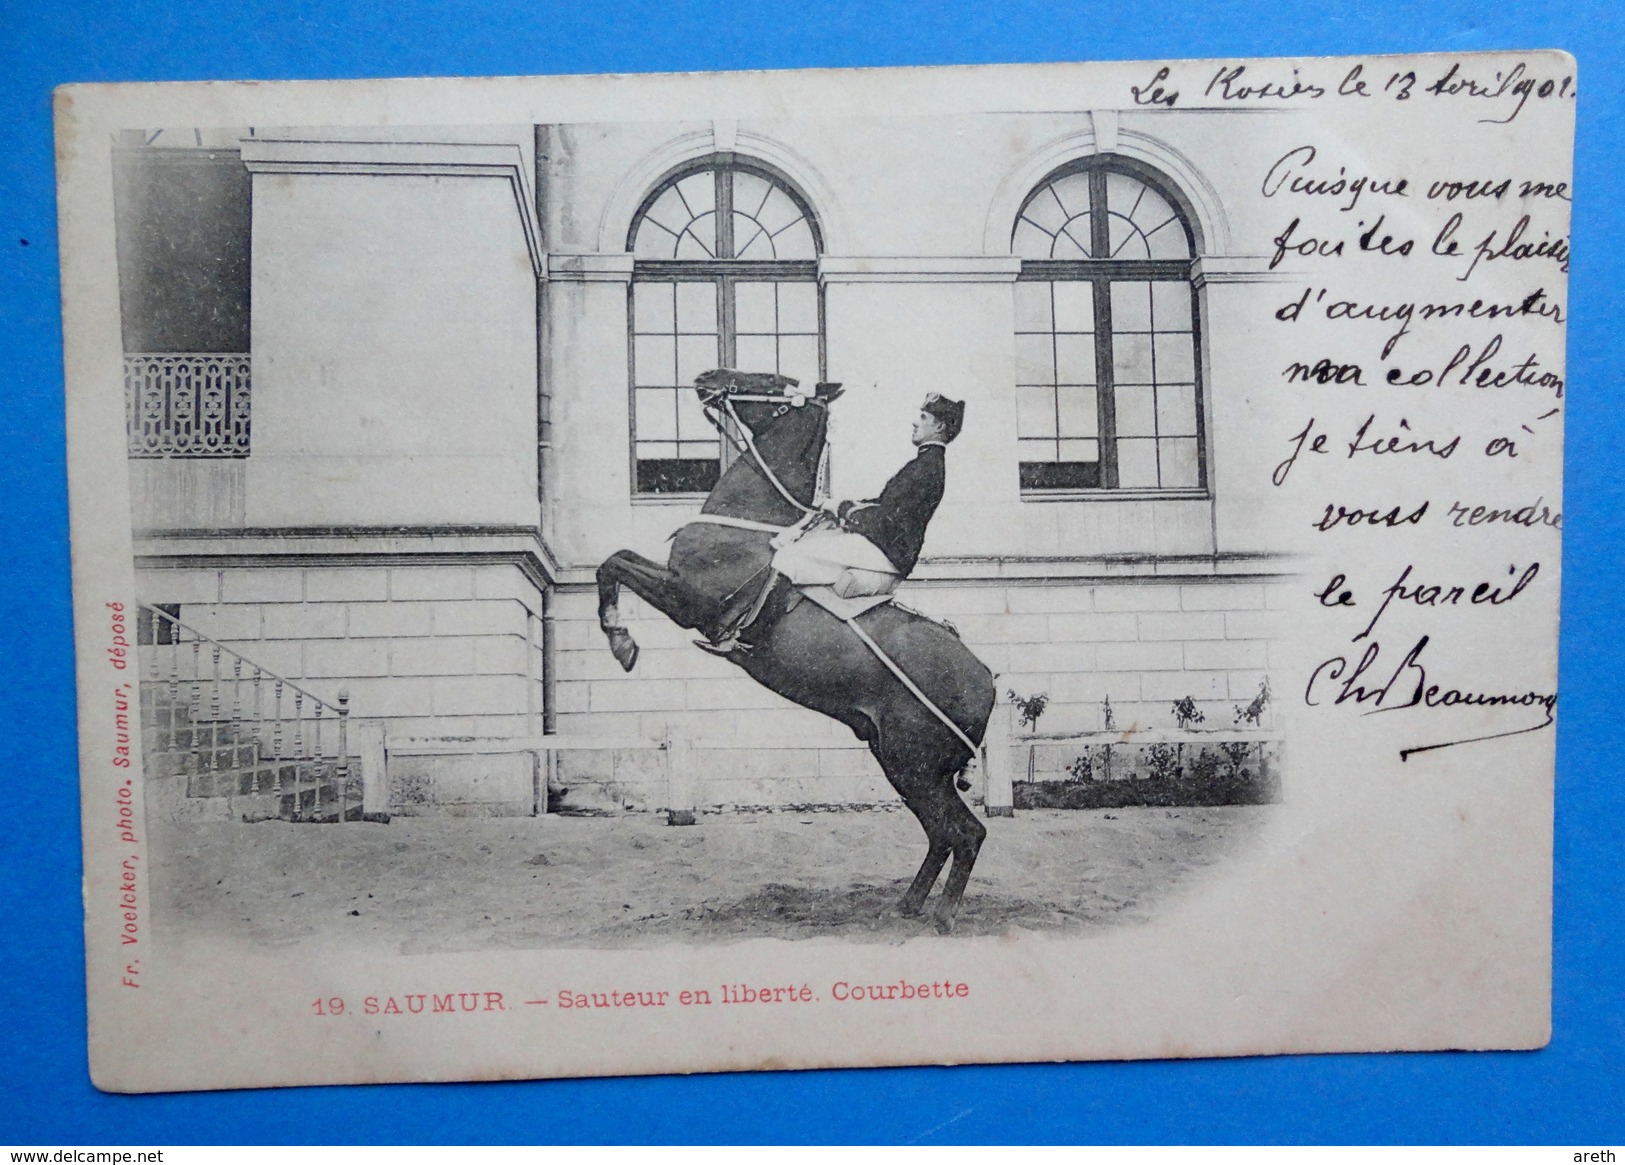 Les Rosiers le 13 Avril 1902.
Puisque vous me
faites le plaisir
d'augmenter
ma collection
je tiens à
vous rendre
le pareil
Ch Beaumont
Fr. Voelcker, photo. Saumur, déposé
19. SAUMUR. — Sauteur en liberté. Courbette
https://www.delcampe.net
areth